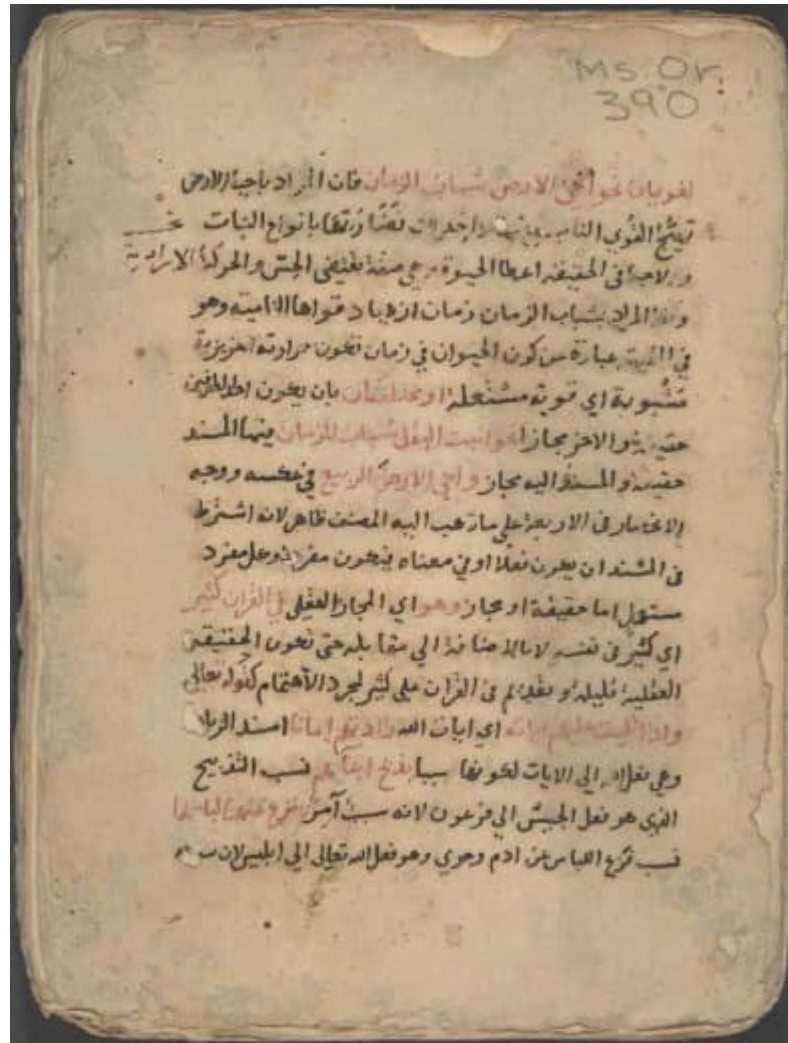 Ms. Or.
390
لغويان نحو احيى الارض شباب الزمان فان المراد باحياء الارض
تهيّج القوي النامية فيها واحداث نضارتها بانواع النبات
والاحياء في الحقيقة اعطا الحيوة وهي صفة تقتضى الحسّ والحركة الارادية
وكذا المراد بشباب الزمان زمان ازدياد قواها النامية وهو
في الحقيقة عبارة عن كون الحيوان في زمان تكون حرارته الغريزية
مشبوبة اي قوية مشتعلة او مختلفان بان يكون احد الطرفين
حقيقة والاخر مجازا نحو انبت البقل شباب الزمان فيما المسند
حقيقة والمسند اليه مجاز واحيى الارض الربيع في عكسه ووجه
الانحصار في الاربعة على ما ذهب اليه المصنف ظاهر لانه اشترط
في المسند ان يكون فعلا او في معناه فيكون مفردا وكل مفرد
مستعمل اما حقيقة او مجاز وهو اي المجاز العقلي في القران كثير
اي كثير في نفسه لا بالاضافة الي مقابله حتى تكون الحقيقة
العقلية قليلة و تقديم في القران على كثير لمجرد الاهتمام كقوله تعالى
واذا تليت عليهم اياته اي ايات الله زادتهم ايمانا اسند الزيادة
وهي فعل الله الي الايات لكونها سببا يذبح ابناءهم نسب التذبيح
الذي هو فعل الجيش الي فرعون لانه سبب آمر ينزع عنهما لباسهما
نسب نزع اللباس عن ادم وحوي وهو فعل الله تعالى الي ابليس لان